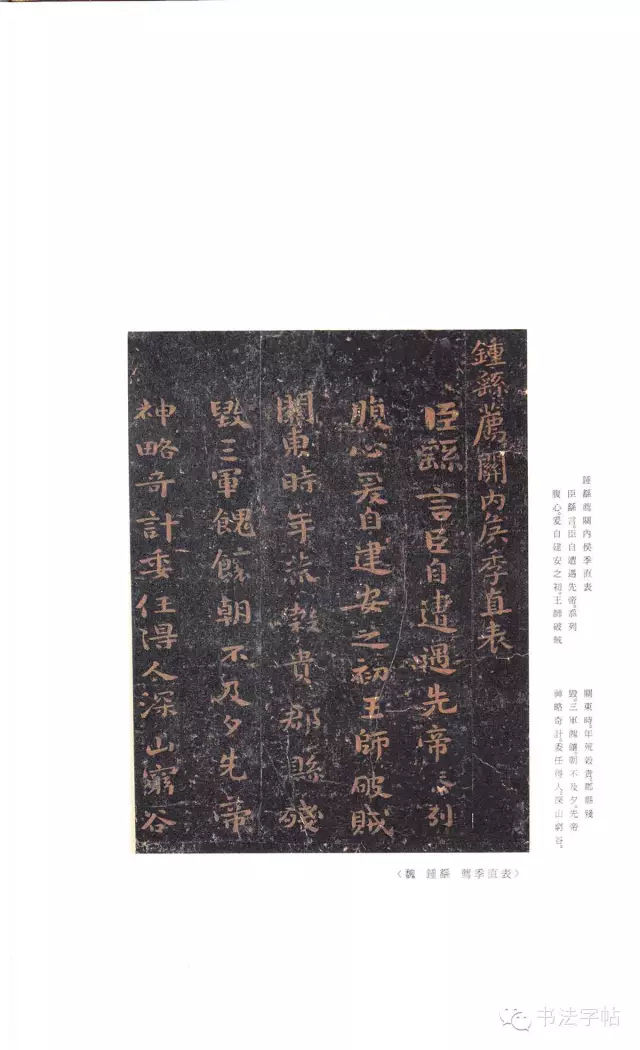 鍾繇薦關內侯季直表
臣繇言臣自遭遇先帝忝列
腹心爰自建安之初王師破賊
關東時年荒穀貴郡縣殘
毀三軍餽饟朝不及夕先帝
神略奇計委任得人深山窮谷
鍾繇薦關內侯季直表
臣繇言。臣自遭遇先帝。忝列
腹心。爰自建安之初。王師破賊
關東時。年荒穀貴。郡縣殘
毀。三軍餽饟。朝不及夕。先帝
神略奇計。委任得人。深山窮谷。
〈魏 鍾繇 薦季直表〉
书法字帖